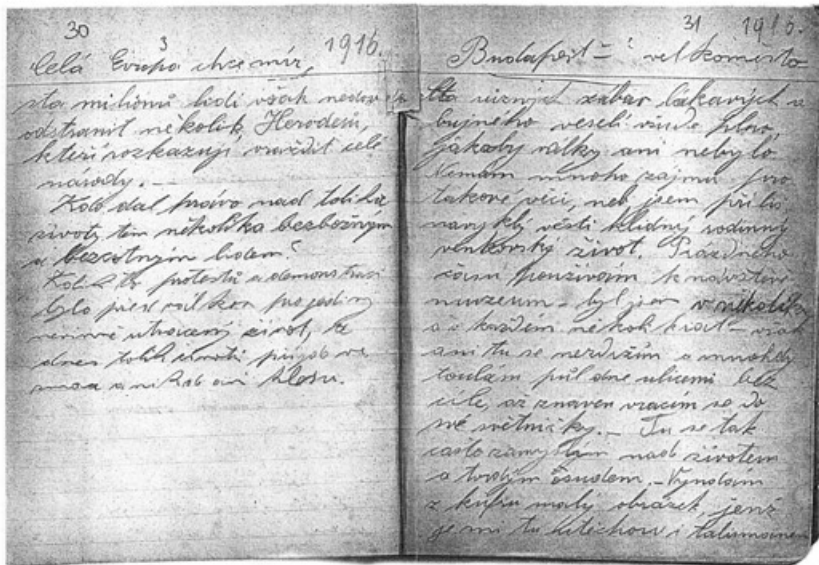 30
3
1916.
Celá Evropa chce mír,
sta milionů lidí však nedov
odstranit několik Herodesů,
kteří rozkazují vraždit celé
národy. —
Kdo dal právo nad tolika
životy těm několika bezbožným
a bezcitným lidem?
protestů a demonstrací
bylo před válkou pro jediný
nevinně utracený život, že
dnes tolik
a nikdo ani hlesu.
31
1916.
Budapešť = velkoměsto
různých zábav lákavých a
bujného veselí všude plno,
jakoby války ani nebylo
Nemám mnoho zájmu pro
takové věci, neb jsem příliš
navyklý vésti klidný rodinný
venkovský život. Prázdného
času používám k návštěvě
museum – byl jsem v několika
a v každém několikrát – však
ani tu se nezdržím a mnohdy
toulám půl dne ulicemi bez
cíle, až znaven vracím se do
své světničky. — Tu se tak
často zamyslím nad životem
a tvrdým osudem. – Vyndám
z kufru malý obrázek, jenž
je mi tu útěchou i talismanem